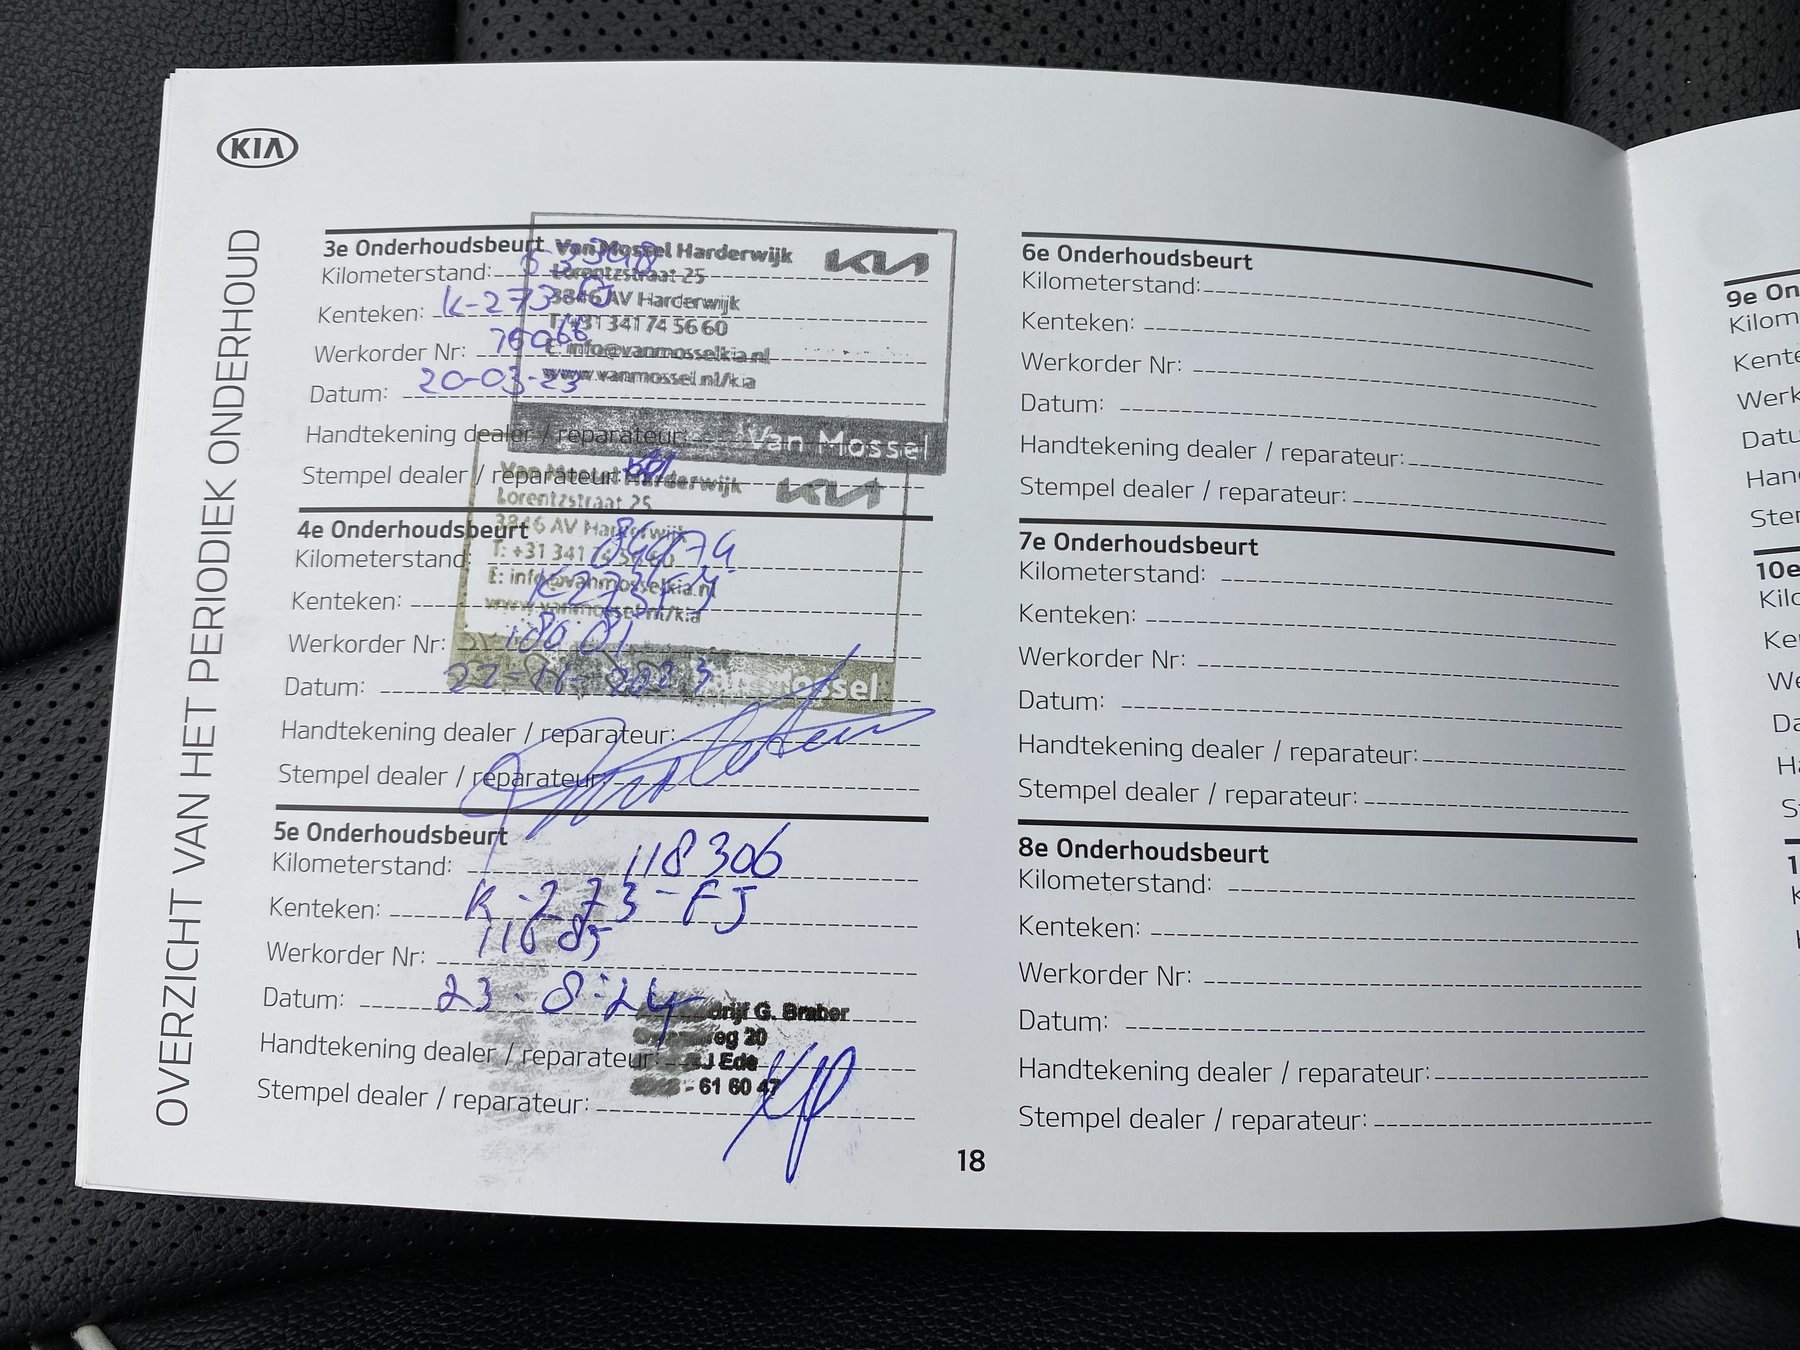 KIA
OVERZICHT VAN HET PERIODIEK ONDERHOUD
3e Onderhoudsbeurt
Kilometerstand:
Kenteken: K-273-FJ
Werkorder Nr:
Datum: 20-03-23
Handtekening dealer / reparateur:
Stempel dealer / reparateur:
Van Mossel Harderwijk KIA
Lorentzstraat 25
3846 AV Harderwijk
T: +31 341 74 56 60
E: info@vanmosselkia.nl
www.vanmossel.nl/kia
Van Mossel
4e Onderhoudsbeurt
Kilometerstand:
Kenteken: K-273-FJ
Werkorder Nr:
Datum: 22-11-2023
Handtekening dealer / reparateur:
Stempel dealer / reparateur:
Van Mossel Harderwijk KIA
Lorentzstraat 25
3846 AV Harderwijk
T: +31 341 74 56 60
E: info@vanmosselkia.nl
www.vanmossel.nl/kia
Van Mossel
5e Onderhoudsbeurt
Kilometerstand: 118306
Kenteken: K-273-FJ
Werkorder Nr: 11685
Datum: 23-8-24
Handtekening dealer / reparateur:
Stempel dealer / reparateur:
G. Braber
20
Ede
- 61 60 47
6e Onderhoudsbeurt
Kilometerstand:
Kenteken:
Werkorder Nr:
Datum:
Handtekening dealer / reparateur:
Stempel dealer / reparateur:
7e Onderhoudsbeurt
Kilometerstand:
Kenteken:
Werkorder Nr:
Datum:
Handtekening dealer / reparateur:
Stempel dealer / reparateur:
8e Onderhoudsbeurt
Kilometerstand:
Kenteken:
Werkorder Nr:
Datum:
Handtekening dealer / reparateur:
Stempel dealer / reparateur:
18
9e On
Kilom
Kente
Werk
Datu
Han
Ster
10e
Kilo
Ke
We
Da
Ha
St